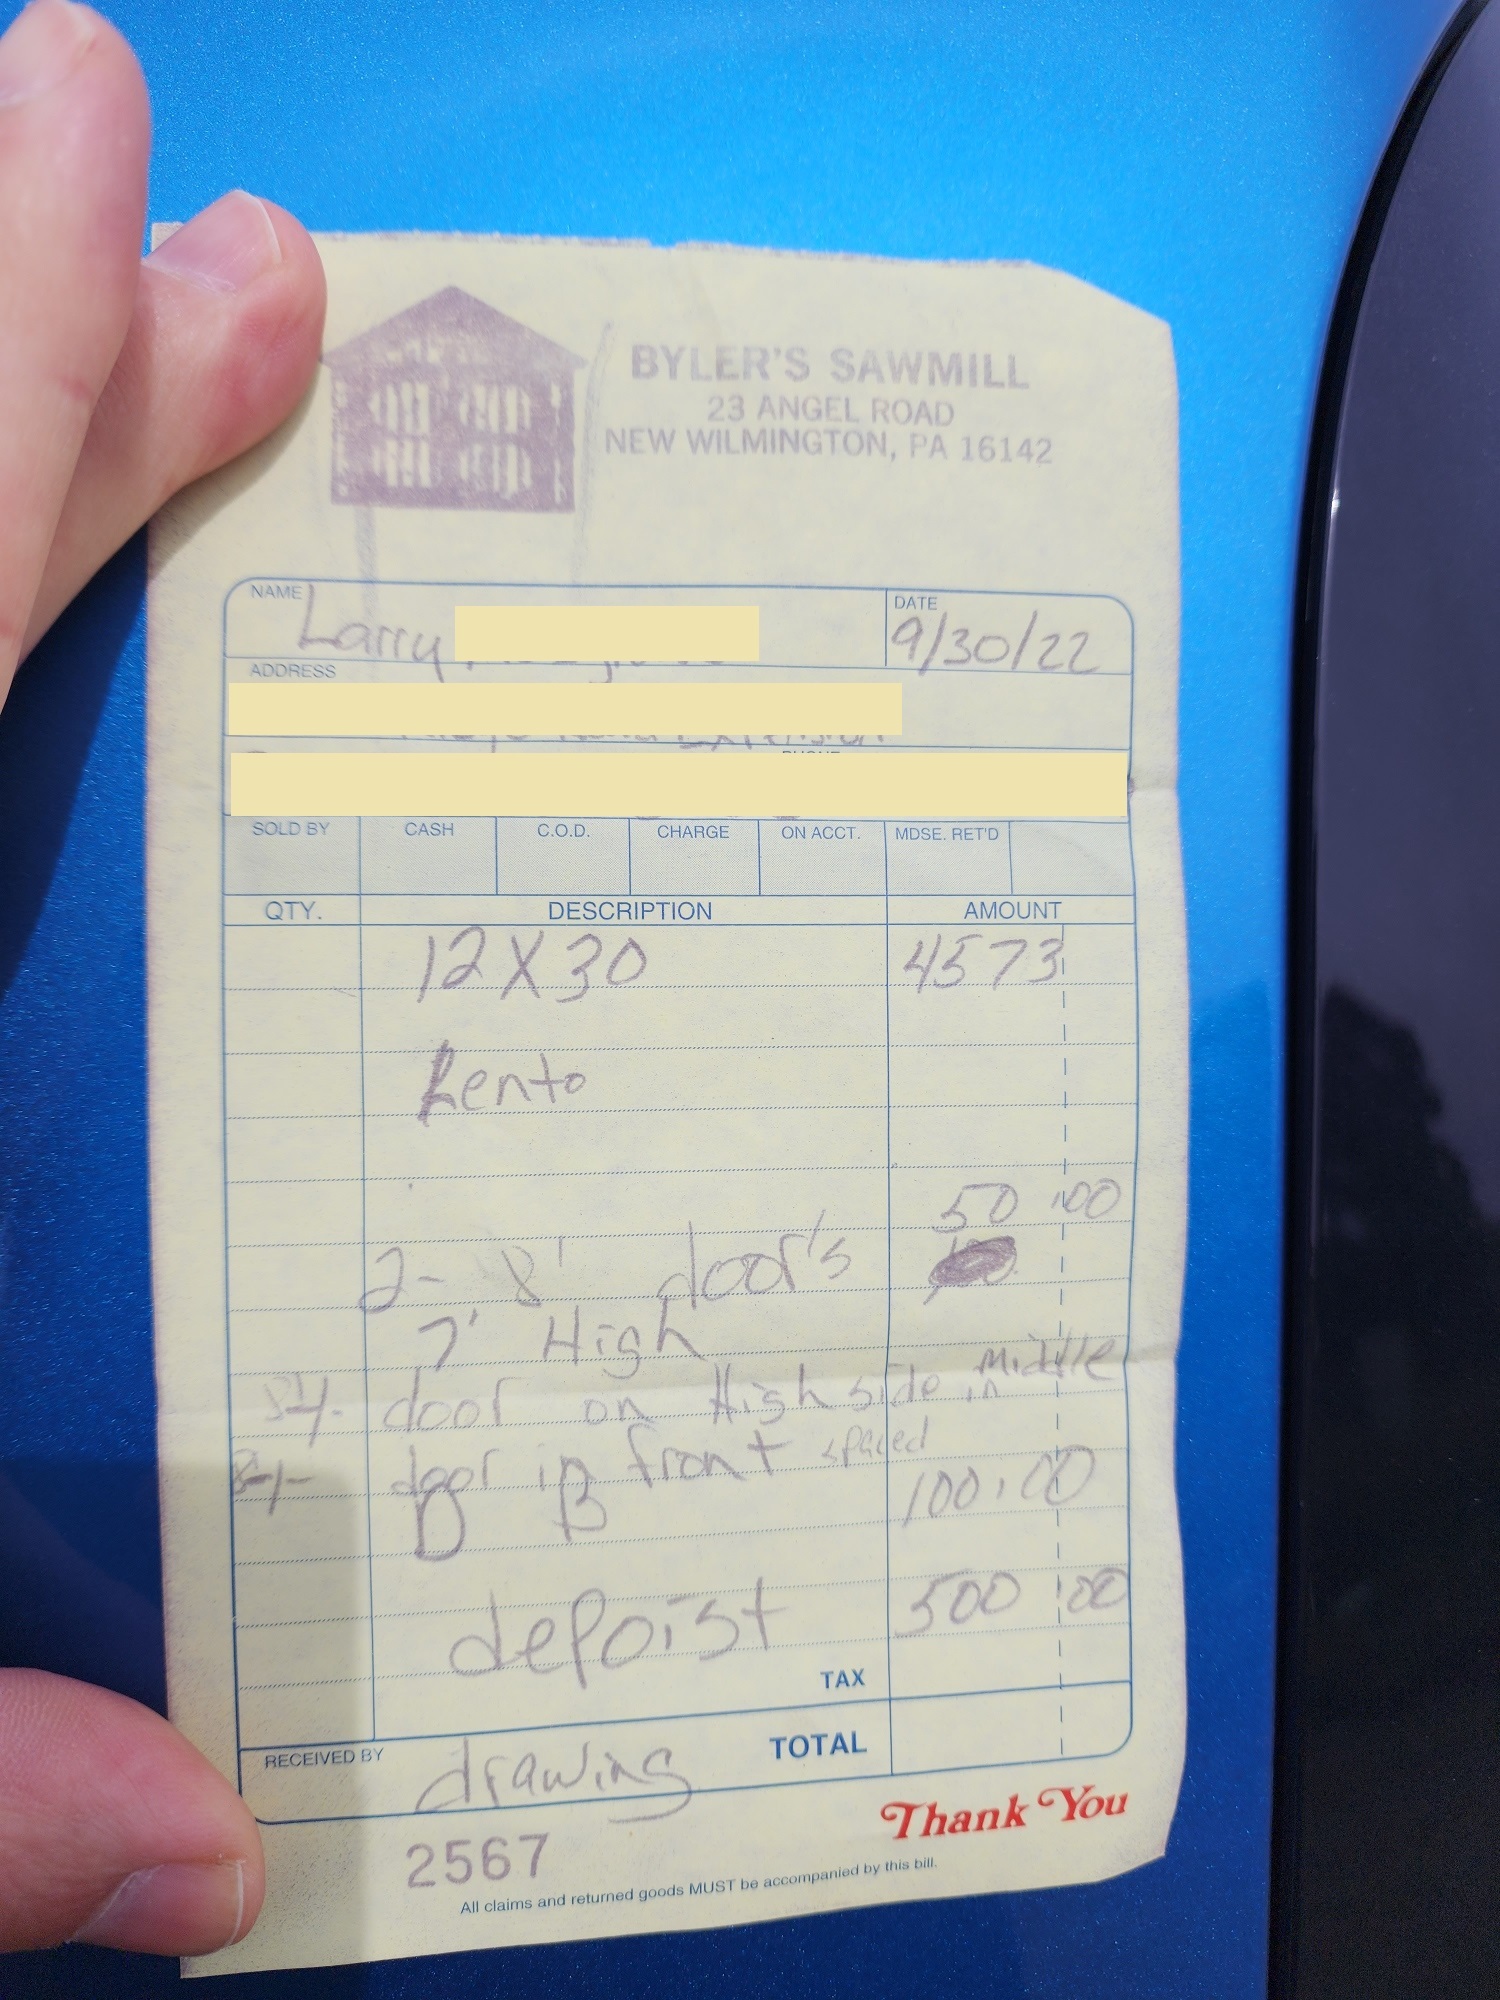 BYLER'S SAWMILL
23 ANGEL ROAD
NEW WILMINGTON, PA 16142
NAME Larry
DATE 9/30/22
ADDRESS
SOLD BY CASH C.O.D. CHARGE ON ACCT. MDSE. RET'D
QTY. DESCRIPTION AMOUNT
12 X 30 4573
Lento
50 00
2- 8' door's
7' High
door on High side in Middle
door in front spaced
100.00
depoist 500 00
TAX
RECEIVED BY drawing TOTAL
Thank You
2567
All claims and returned goods MUST be accompanied by this bill.